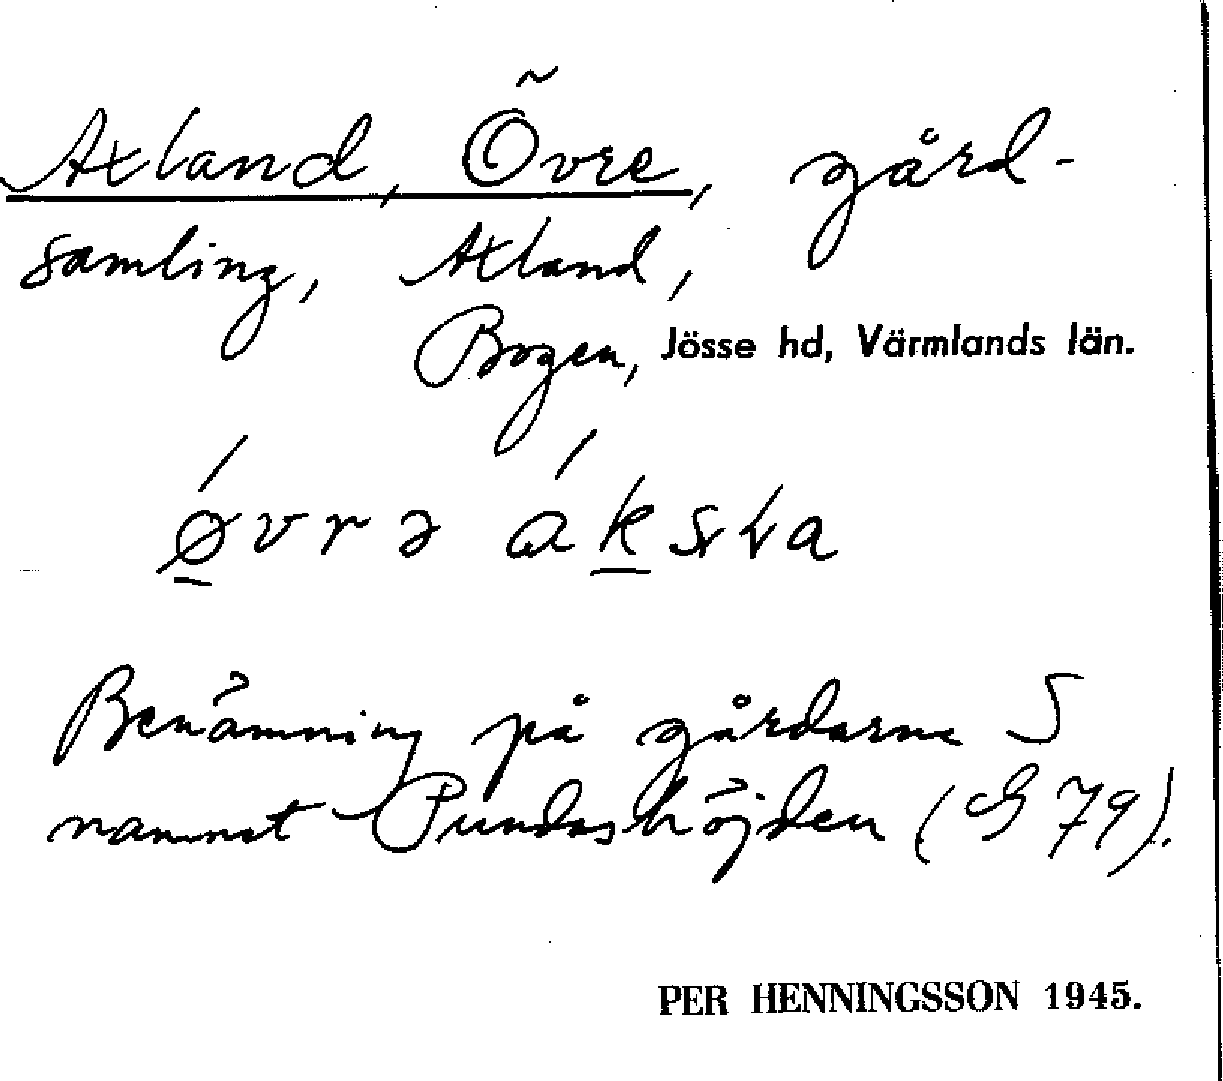 Axland, Övre, gård-
samling, Axland,
Bogen, Jösse hd, Värmlands län.
øvrə áksla
Benämning på gårdarna S
namnet Pundashöjden (G 79).
PER HENNINGSSON 1945.